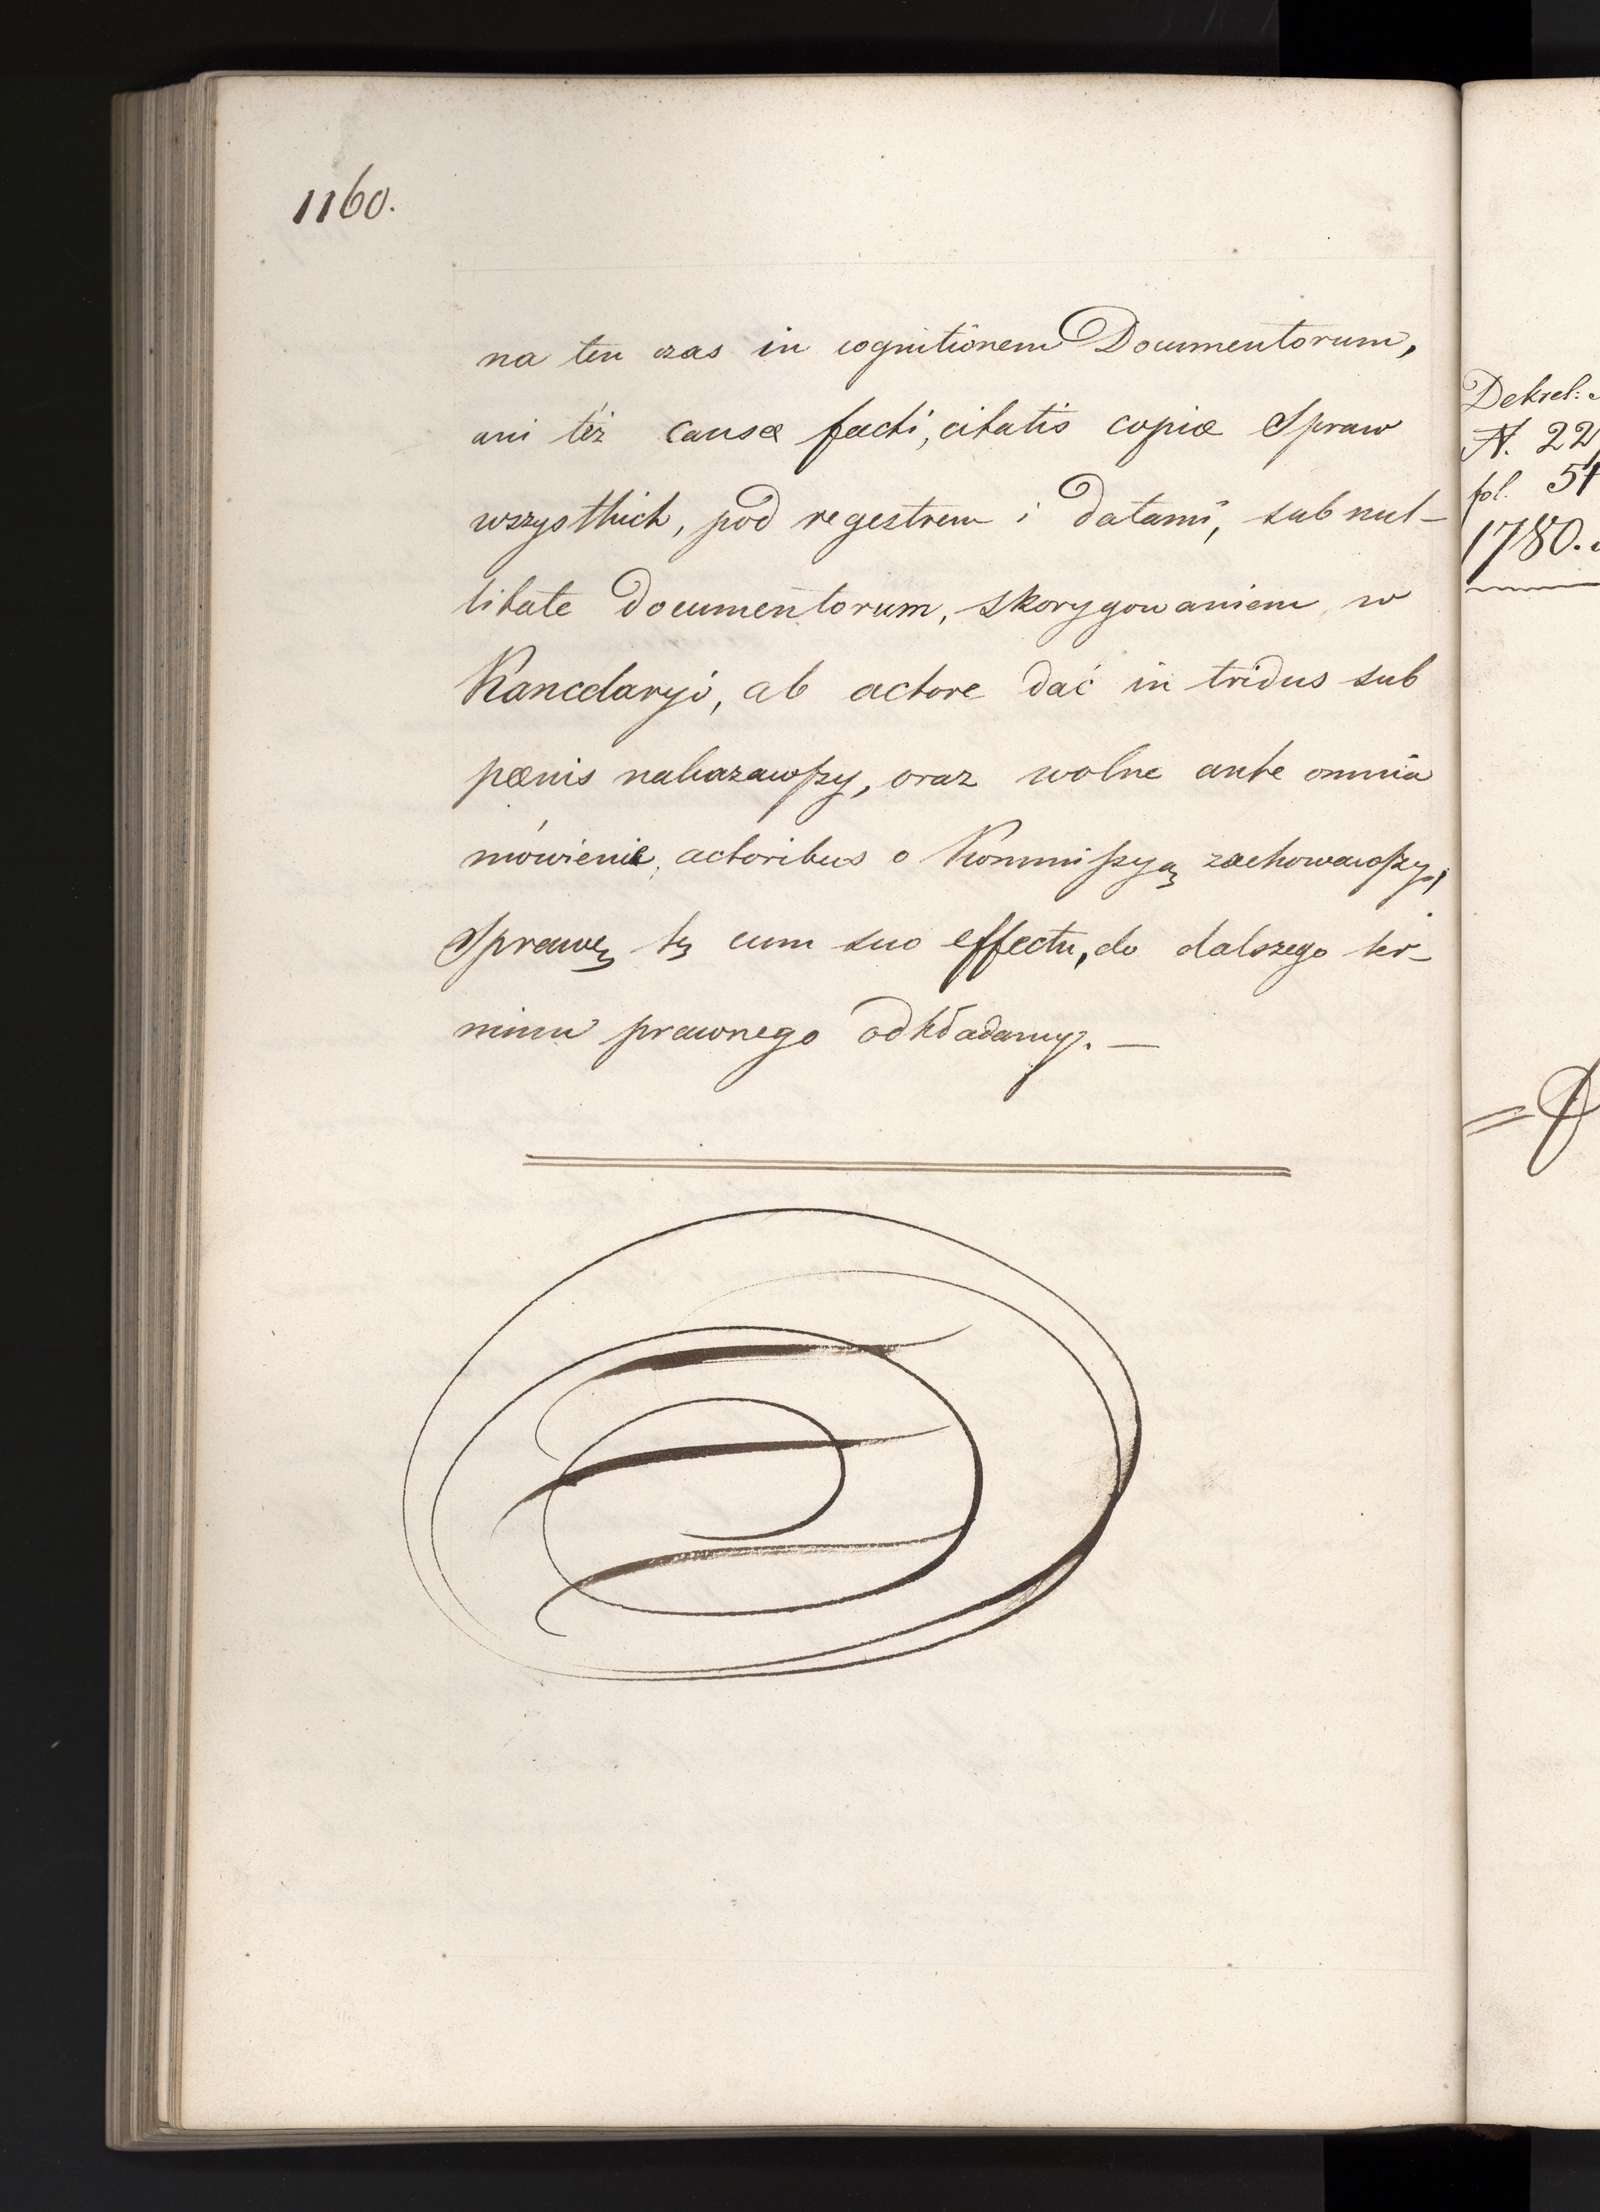 1160.
na ten czas in cognitionem Documentorum,
ani też causæ facti, citatis copiæ Spraw
wszystkich, pod regestrem i datami, sub nul-
litate documentorum, skorygowaniem w
Kancelaryi, ab actore dać in tridus sub
pœnis nakazawszy, oraz wolne ante omnia
mówienie, actoribus o Kommiszyą zachowawszy,
Sprawę tę cum suo effectu, do dalszego ter-
minu prawnego odkładamy. —
Dekret:
N. 22
fol. 51
1780.